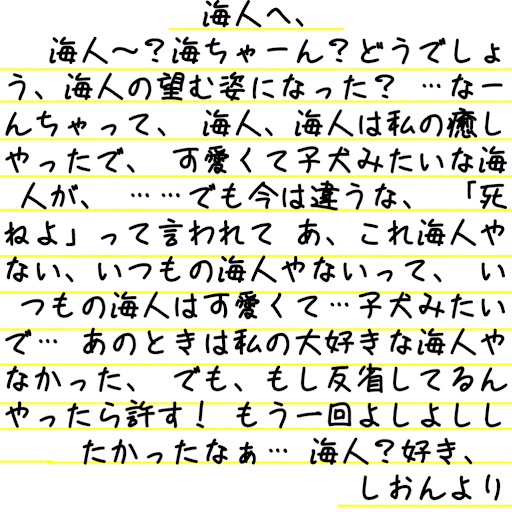 海人へ、
海人〜?海ちゃーん?どうでしょ
う、海人の望む姿になった? …なー
んちゃって、 海人、海人は私の癒し
やったで、 可愛くて子犬みたいな海
人が、 ……でも今は違うな、 「死
ねよ」って言われて あ、これ海人や
ない、いつもの海人やないって、 い
つもの海人は可愛くて…子犬みたい
で… あのときは私の大好きな海人や
なかった、 でも、もし反省してるん
やったら許す! もう一回よしよしし
たかったなぁ… 海人?好き、
しおんより